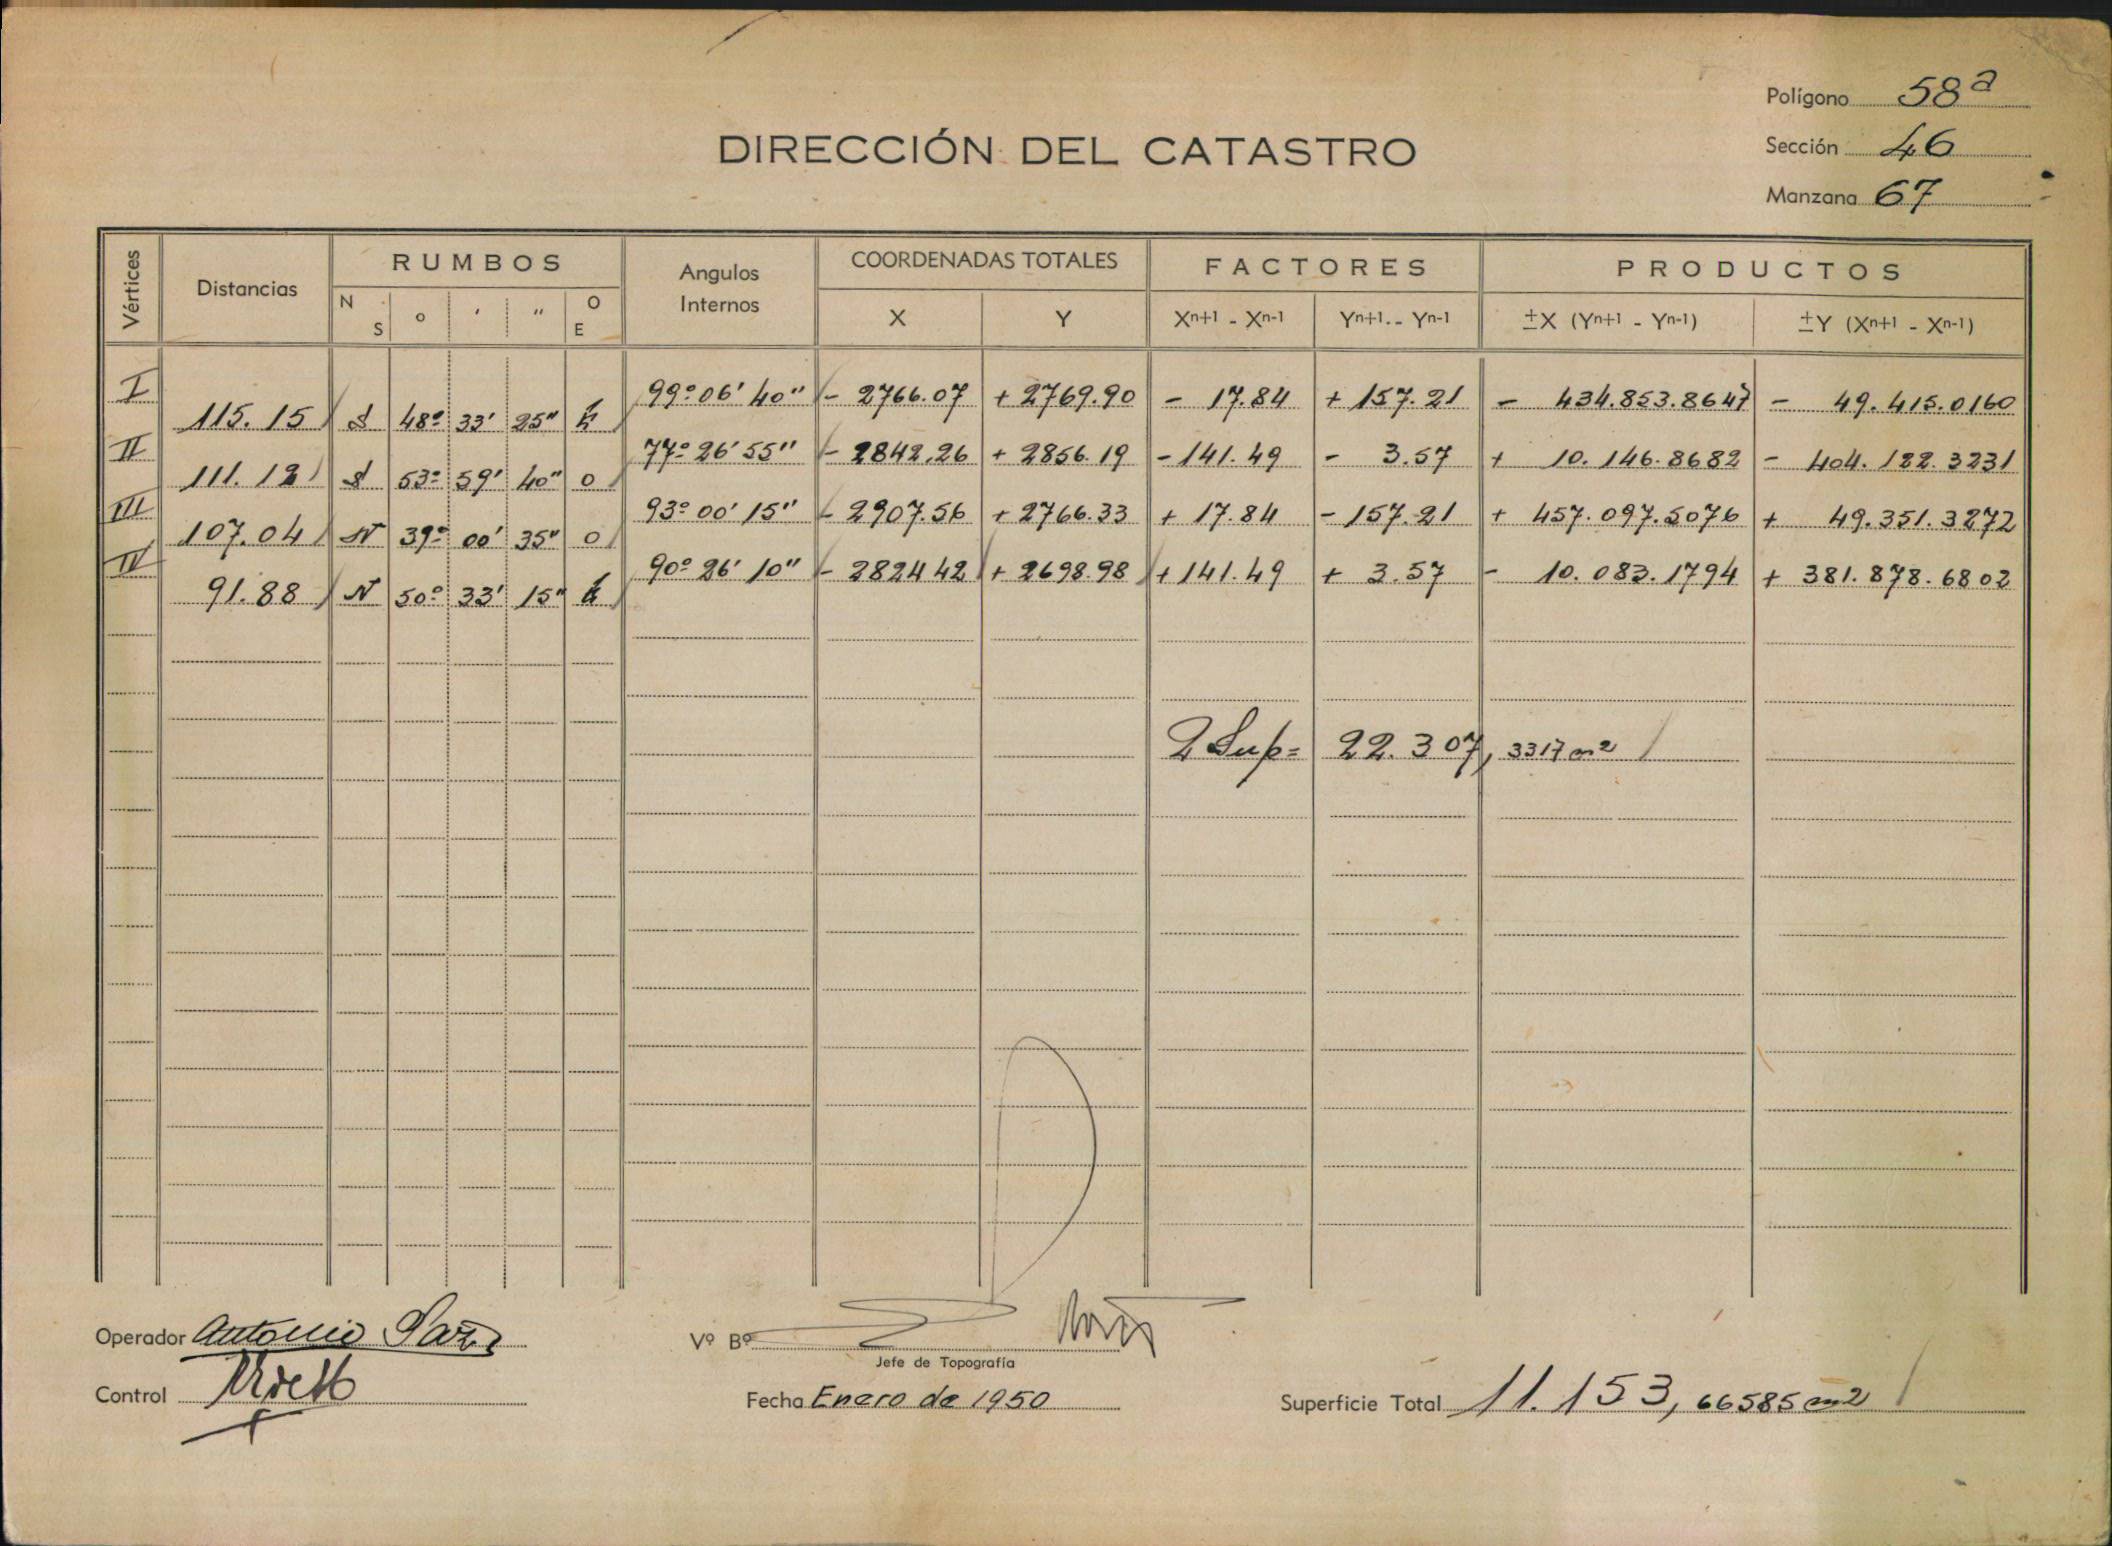 Polígono 58ª
DIRECCIÓN DEL CATASTRO
Sección 46
Manzana 67
Vértices Distancias RUMBOS Angulos Internos COORDENADAS TOTALES FACTORES PRODUCTOS
N S º ' " O E X Y Xⁿ⁺¹ - Xⁿ⁻¹ Yⁿ⁺¹ - Yⁿ⁻¹ ±X (Yⁿ⁺¹ - Yⁿ⁻¹) ±Y (Xⁿ⁺¹ - Xⁿ⁻¹)
I 99º 06' 40" - 2766.07 + 2769.90 - 17.84 + 157.21 - 434.853.8647 - 49.415.0160
115.15 S 48º 33' 25" E
II 77º 26' 55" - 2842.26 + 2856.19 - 141.49 - 3.57 + 10.146.8682 - 404.122.3231
111.12 S 53º 59' 40" O
III 93º 00' 15" - 2907.56 + 2766.33 + 17.84 - 157.21 + 457.097.5076 + 49.351.3272
107.04 N 39º 00' 35" O
IV 90º 26' 10" - 2824 42 + 2698.98 + 141.49 + 3.57 - 10.083.1794 + 381.878.6802
91.88 N 50º 33' 15" E
2 Sup= 22.307, 3317 m2
Operador Antonio
Vº Bº
Jefe de Topografía
Control
Fecha Enero de 1950
Superficie Total 11.153, 66585 m2